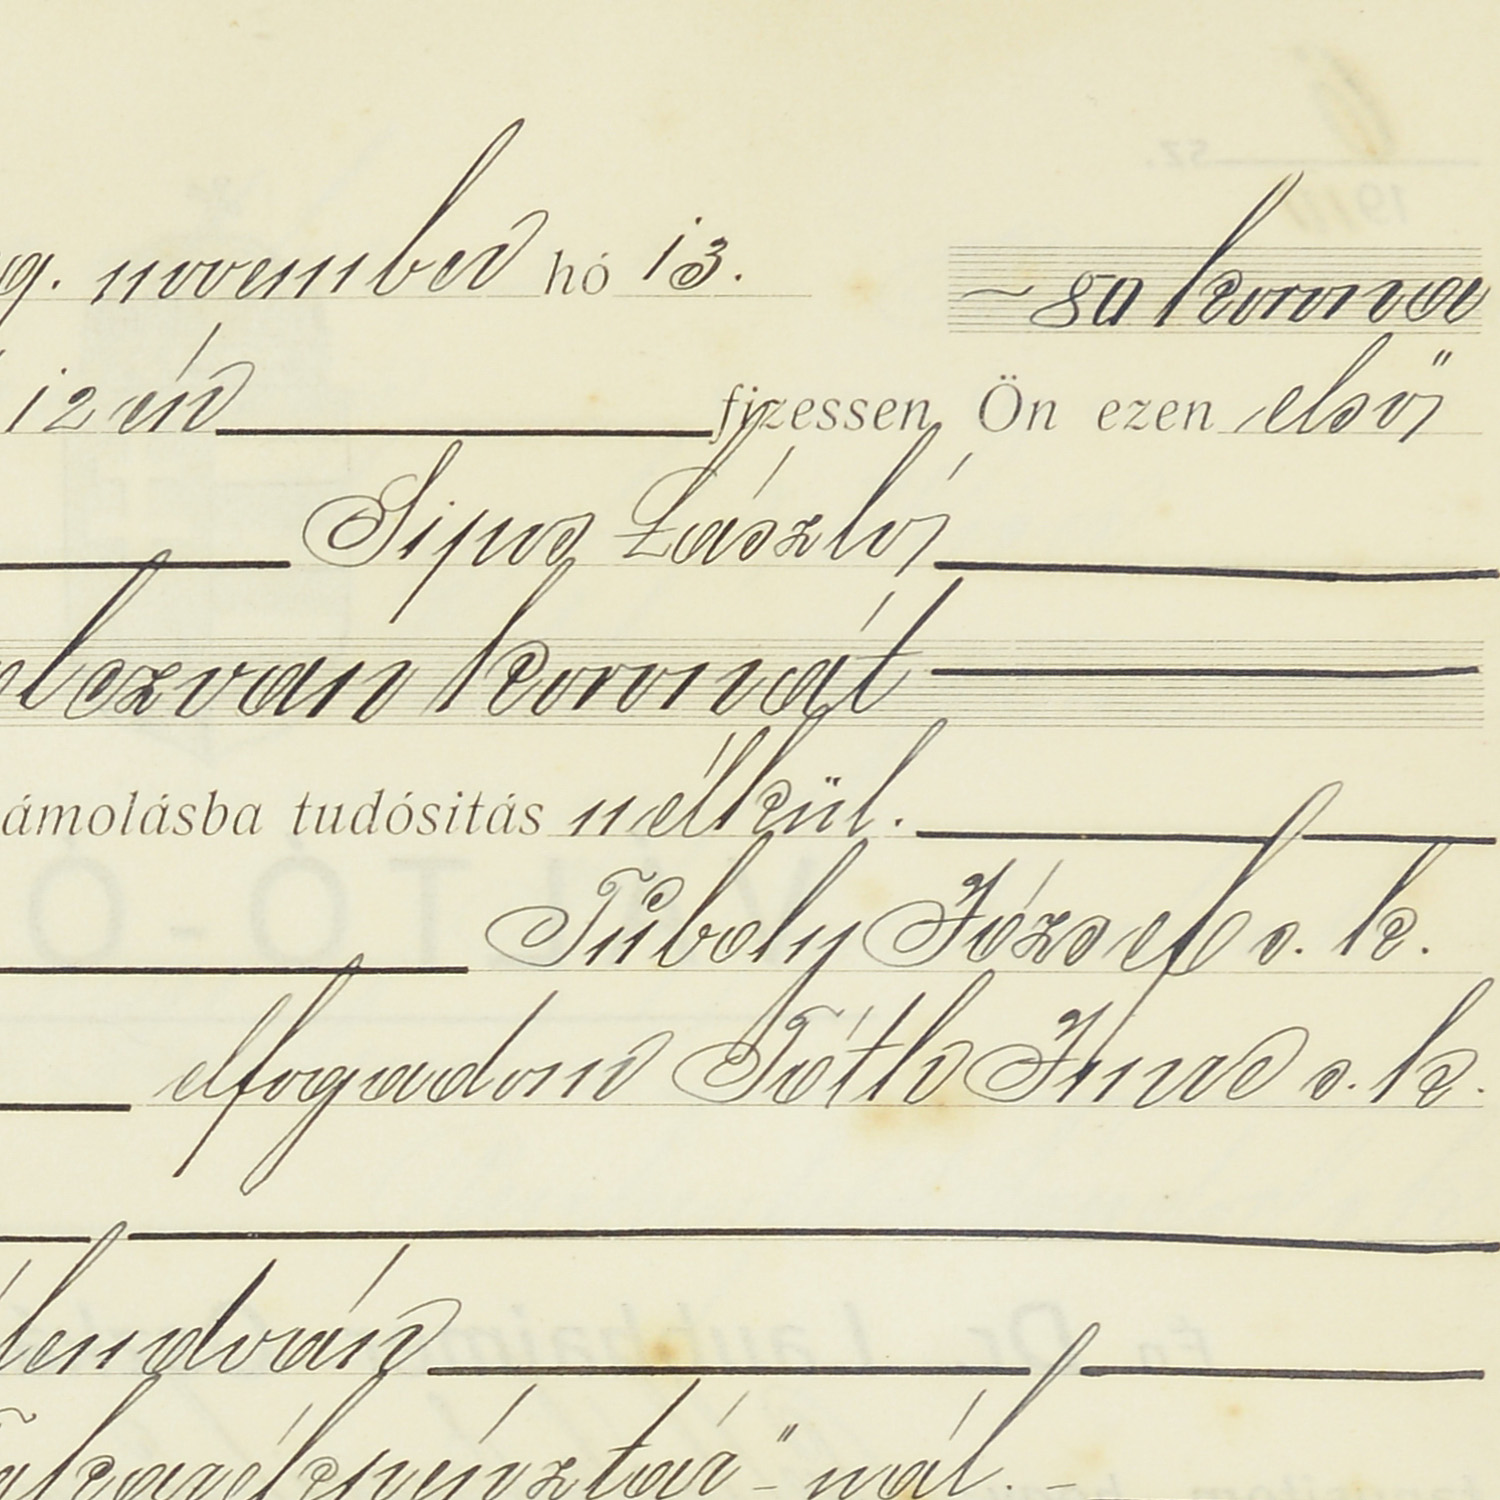 9. november hó 13.
~ 80 korona
12 én fizessen Ön ezen első
Sipos László
olczvan koronát
ámolásba tudósitás nélkül.
Tüboly József s. k.
elfogadom Tóth Imre s. k.
lendván
akarékpénztár"-nál. -